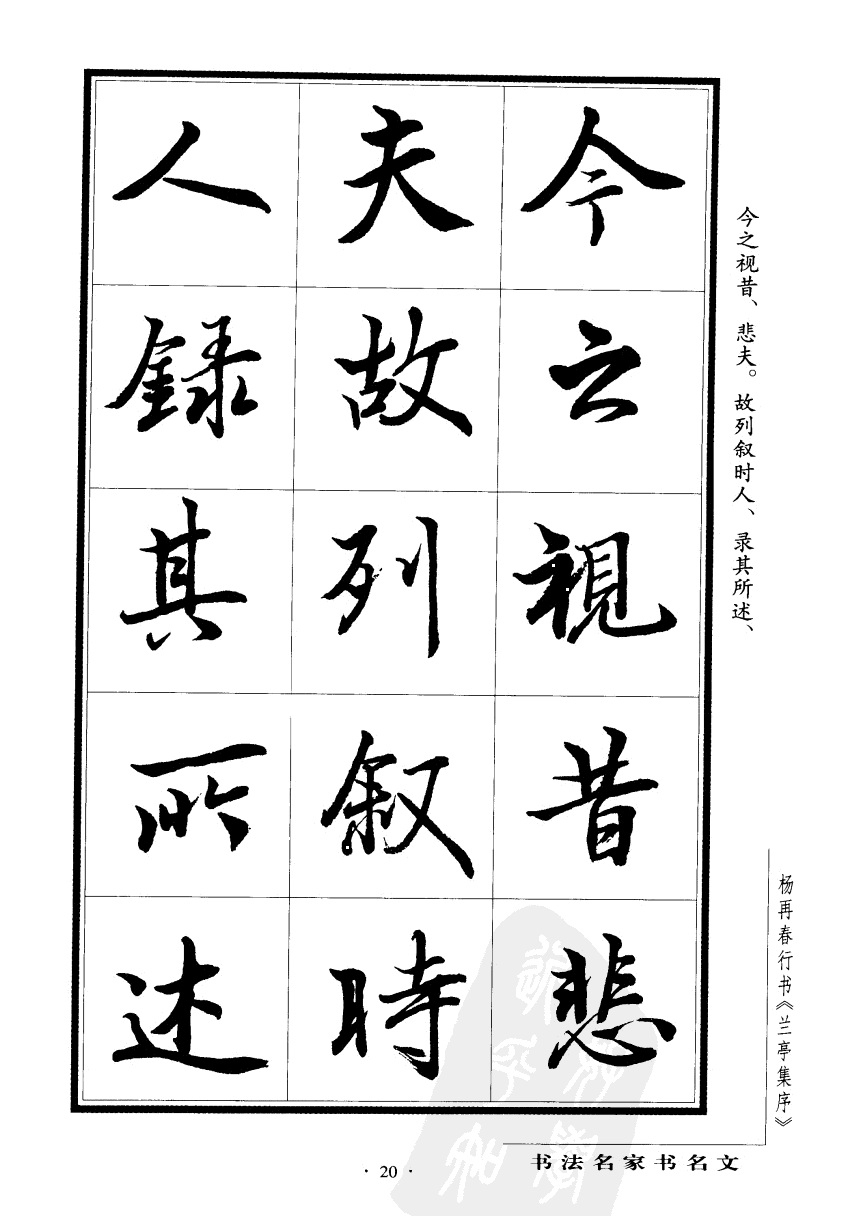 今之視昔悲
夫故列叙時
人録其所述
今之视昔、悲夫。故列叙时人、录其所述、
杨再春行书《兰亭集序》
书法名家书名文
· 20 ·